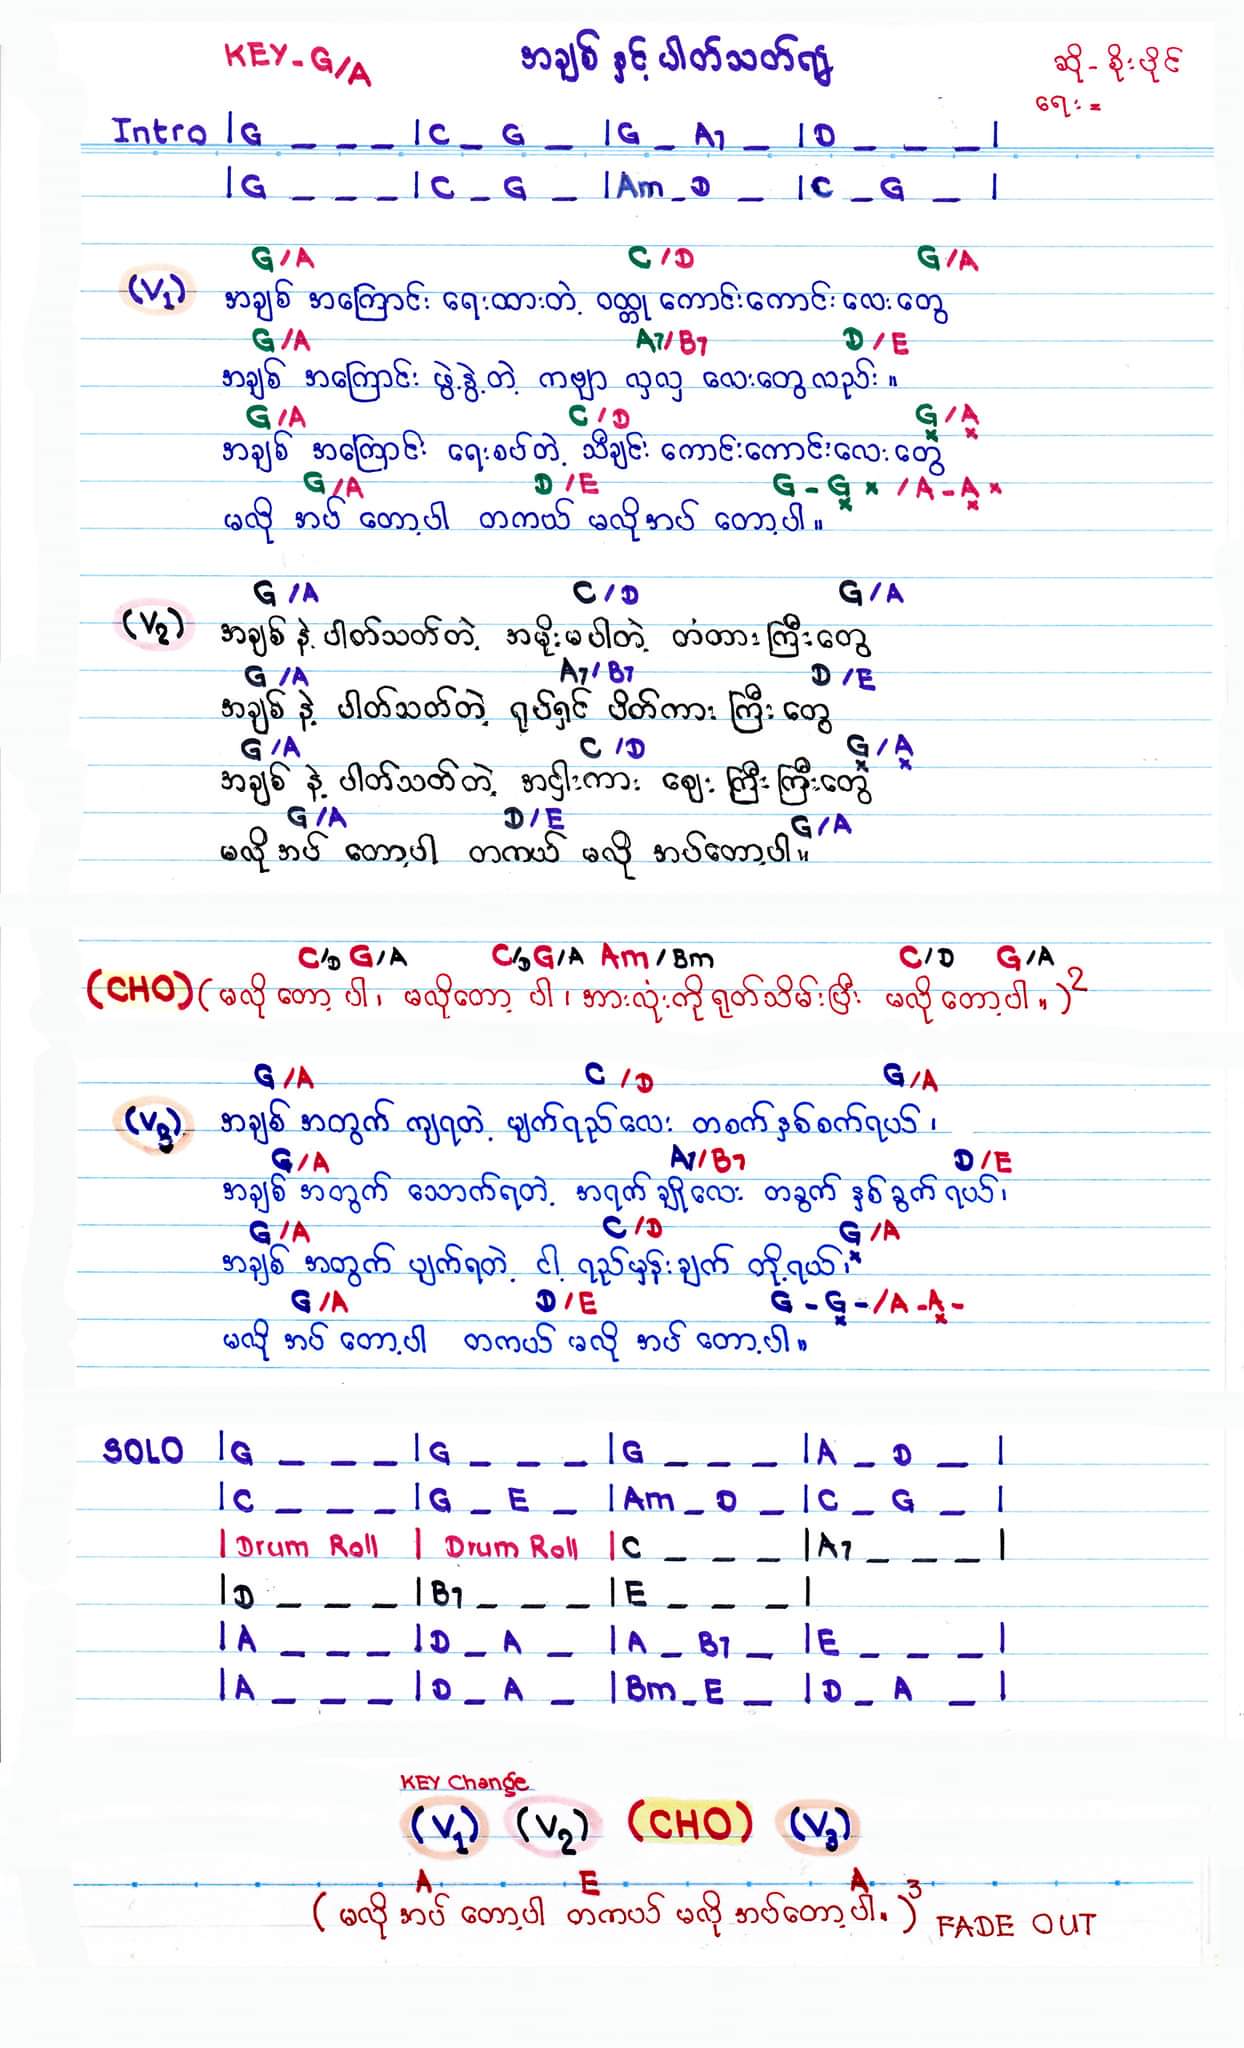 KEY-G/A အချစ် နှင့် ပါတ်သတ်၍ ဆို - စိုးပိုင်
ရေး =
Intro |G _ _ _ |C _ G _ |G _ A7 _ |D _ _ _|
|G _ _ _ |C _ G _ |Am _ D _ |C _ G _ |
G/A C/D G/A
(V1) အချစ် အကြောင်း ရေးထားတဲ့ ဝတ္ထု ကောင်းကောင်း လေးတွေ
G/A A7/B7 D/E
အချစ် အကြောင်း ဖွဲ့နွဲ့တဲ့ ကဗျာ လှလှ လေးတွေလည်း။
G/A C/D G/A
အချစ် အကြောင်း ရေးစပ်တဲ့ သီချင်း ကောင်းကောင်းလေးတွေ
G/A D/E G - G x /A - A x
မလို အပ် တော့ပါ တကယ် မလိုအပ် တော့ပါ။
G/A C/D G/A
(V2) အချစ် နဲ့ ပါတ်သတ်တဲ့ အမိုးမပါတဲ့ တံတား ကြီးတွေ
G/A A7/B7 D/E
အချစ် နဲ့ ပါတ်သတ်တဲ့ ရုပ်ရှင် ပိတ်ကား ကြီး တွေ
G/A C/D G/A
အချစ် နဲ့ ပါတ်သတ်တဲ့ အငှါးကား ဈေး ကြီး ကြီးတွေ
G/A D/E G/A
မလို အပ် တော့ပါ တကယ် မလို အပ်တော့ပါ။
C/D G/A C/D G/A Am/Bm C/D G/A
(CHO) (မလို တော့ ပါ၊ မလိုတော့ ပါ၊ အားလုံးကို ရုတ်သိမ်းပြီး မလို တော့ပါ။)2
G/A C/D G/A
(V3) အချစ် အတွက် ကျရတဲ့ မျက်ရည်လေး တစက် နှစ်စက်ရယ်၊
G/A A7/B7 D/E
အချစ် အတွက် သောက်ရတဲ့ အရက် ချိုလေး တခွက် နှစ်ခွက် ရယ်၊
G/A C/D G/A
အချစ် အတွက် ပျက်ရတဲ့ ငါ့ ရည်မှန်းချက် တို့ရယ်၊
G/A D/E G - G - /A - A -
မလို အပ် တော့ပါ တကယ် မလို အပ် တော့ပါ။
SOLO |G _ _ _ |G _ _ _ |G _ _ _ |A _ D _ |
|C _ _ _ |G _ E _ |Am _ D _ |C _ G _ |
|Drum Roll | Drum Roll |C _ _ _ |A7 _ _ _ |
|D _ _ _ |B7 _ _ _ |E _ _ _ |
|A _ _ _ |D _ A _ |A _ B7 _ |E _ _ _ |
|A _ _ _ |D _ A _ |Bm _ E _ |D _ A _ |
KEY Change
(V1) (V2) (CHO) (V3)
A E A
(မလို အပ် တော့ပါ တကယ် မလို အပ်တော့ပါ။)3 FADE OUT